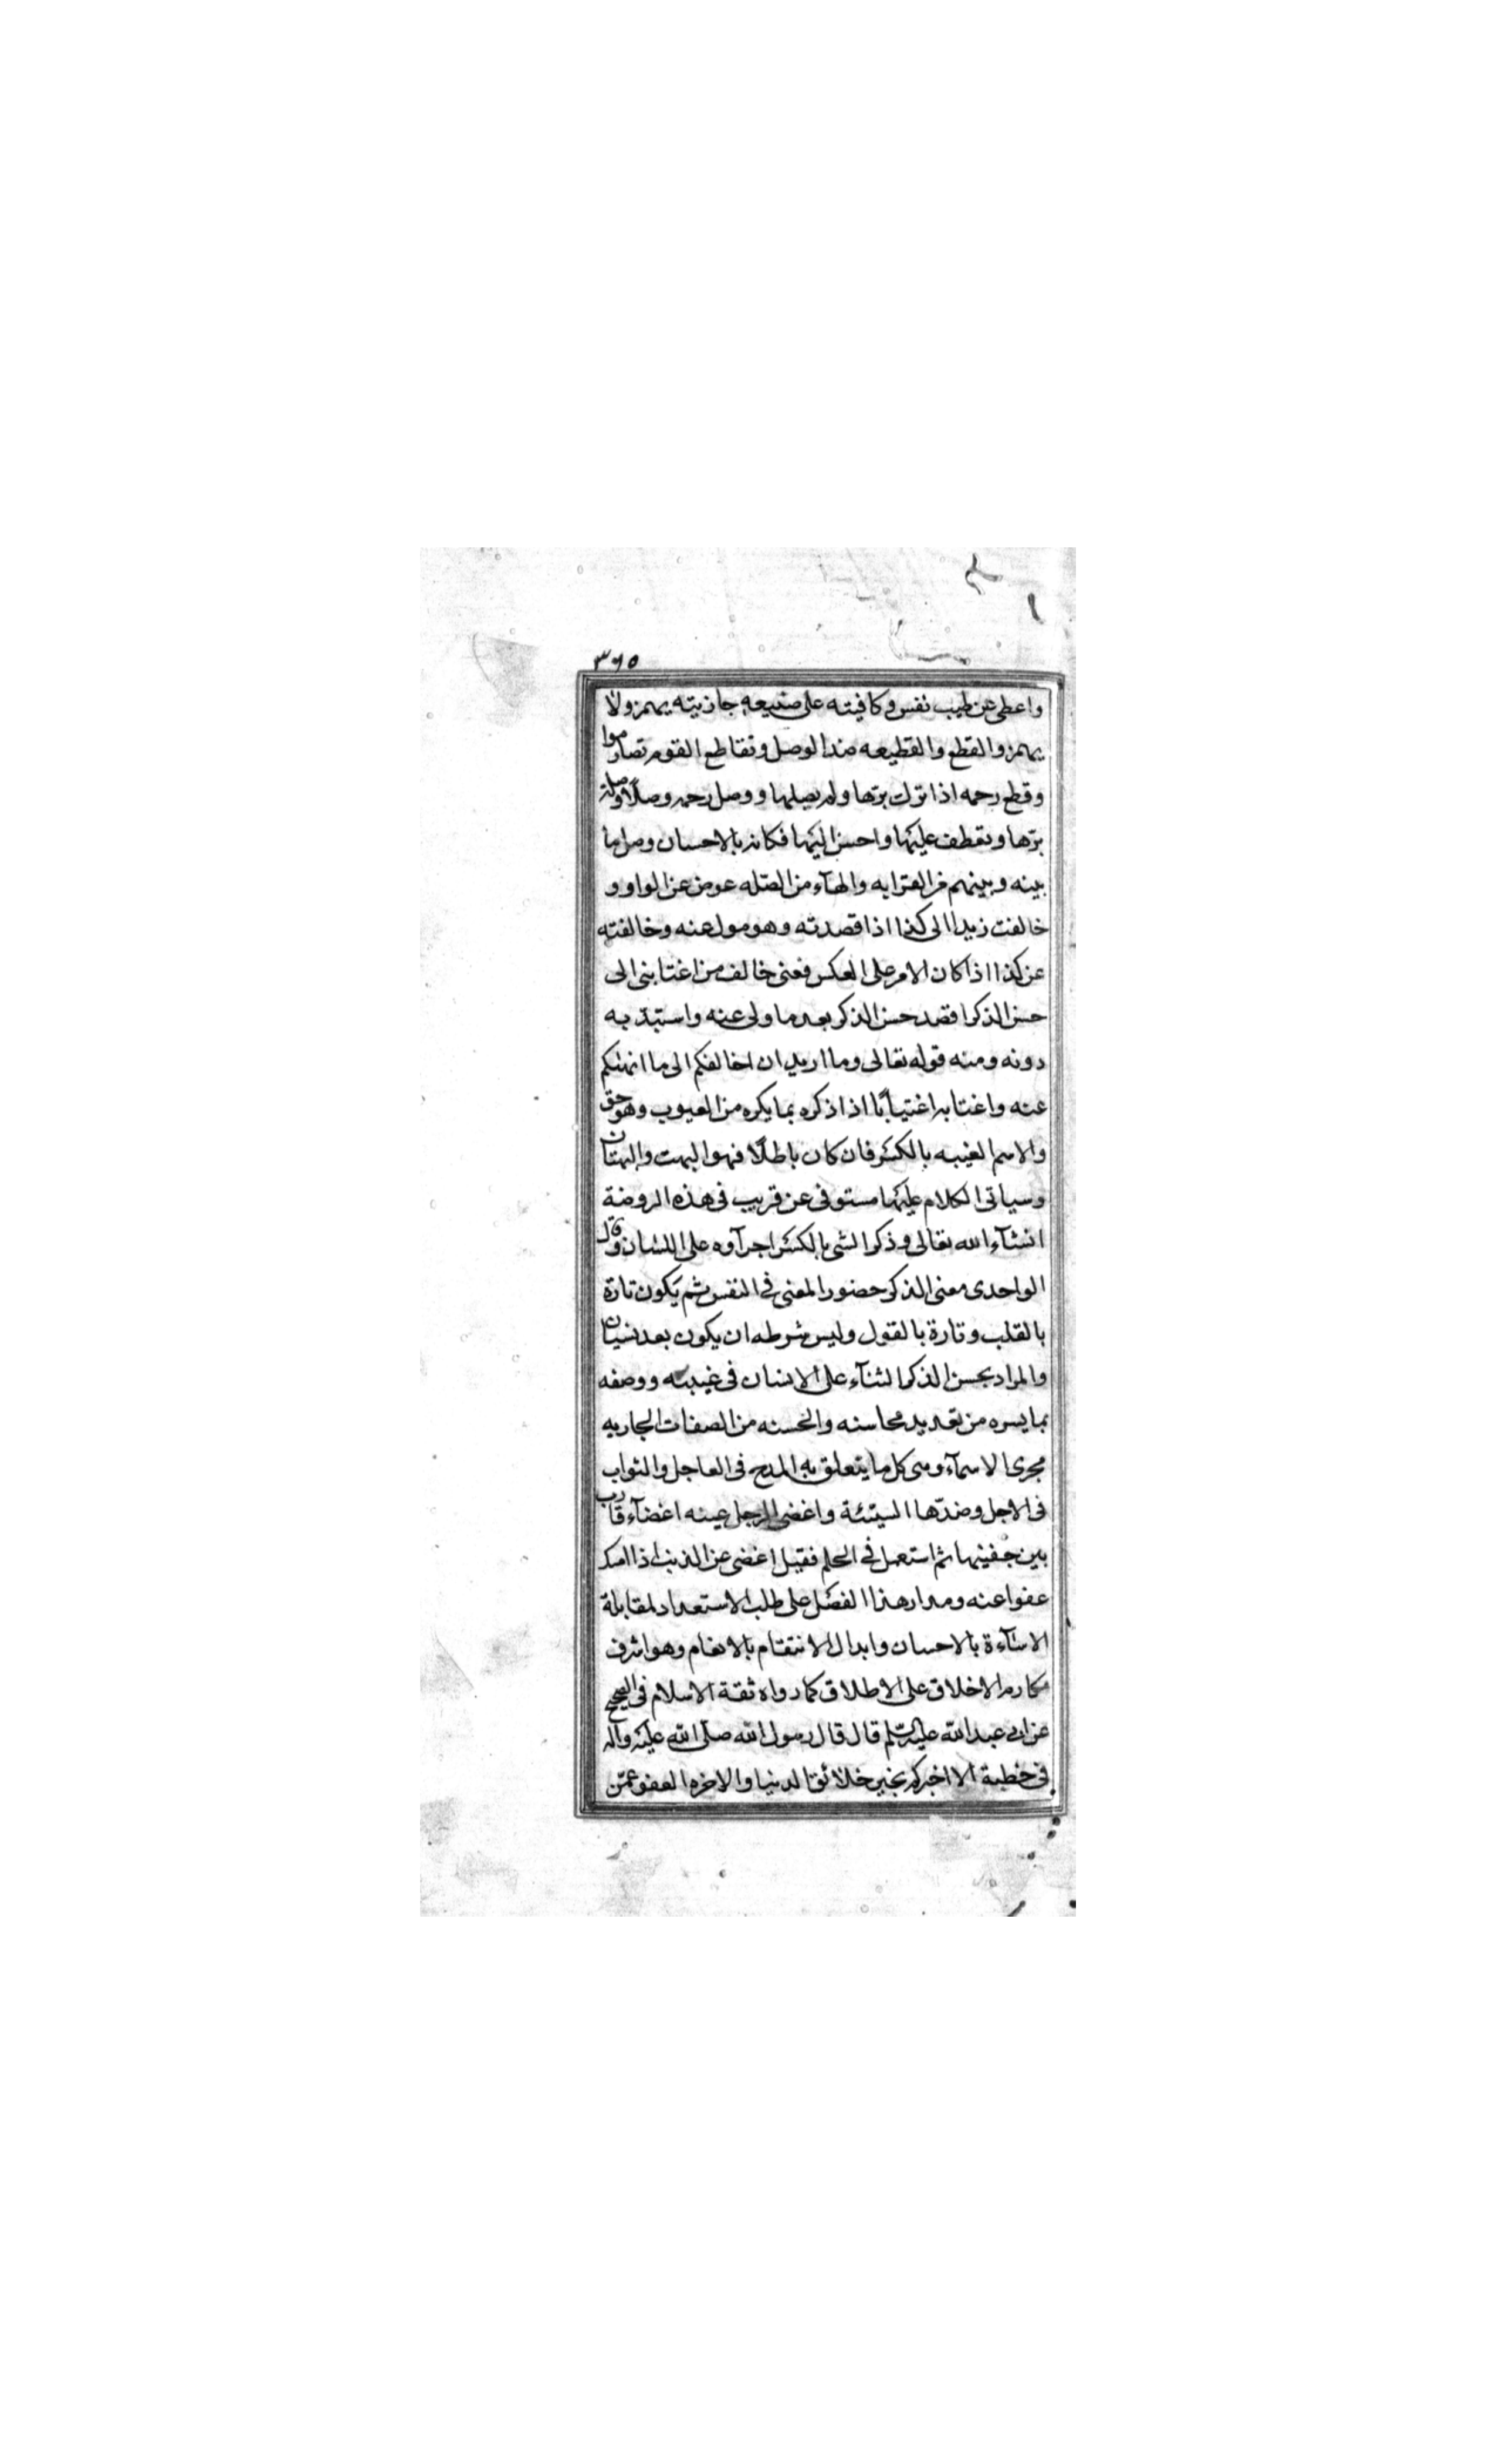 ٣٦٥
واعطى عن طيب نفس وكافيته على صنيعه جازيته يهمز ولا
يهمز والقطع والقطيعه ضد الوصل وتقاطع القوم تصارموا
وقطع رحمه اذا ترك برّها ولم يصلها ووصل رحمه وصلًا وصلة
برّها وتعطف عليها واحسن اليها فكانه بالاحسان وصل ما
بينه وبينهم من القرابه والهآء من الصّله عوض عن الواو و
خالفت زيدا الى كذا اذا قصدته وهو مول عنه وخالفته
عن كذا اذا كان الامر على العكس فمعنى خالف من اغتابنى الى
حسن الذكر اقصد حسن الذكر بعد ما ولى عنه واستبدّ به
دونه ومنه قوله تعالى وما اريد ان اخالفكم الى ما انهيكم
عنه واغتابه اغتيابًا اذا ذكره بما يكره من العيوب وهو حق
والاسم الغيبه بالكسر فان كان باطلًا فهو البهت والبهتان
وسياتى الكلام عليها مستوفى عن قريب فى هذه الروضة
انشآء الله تعالى وذكر الشى بالكسر اجرآوه على اللسان وقال
الواحدى معنى الذكر حضور المعنى فى النفس ثم يكون تارة
بالقلب وتارة بالقول وليس شرطه ان يكون بعد نسيان
والمراد بحسن الذكر الثنآء على الانسان فى غيبته ووصفه
بما يسره من تعديد محاسنه والحسنه من الصفات الجاريه
مجرى الاسمآء وهى كل ما يتعلق به المدح فى العاجل والثواب
فى الاجل وضدّها السيئة واغضى الرجل عينه اغضآء قارب
بين جفينها ثم استعمل فى الحلم فقيل اغضى عن الذنب اذا امسك
عفوا عنه ومدار هذا الفصل على طلب الاستعداد لمقابلة
الاسآءة بالاحسان وابدال الانتقام بالانعام وهو اشرف
مكارم الاخلاق على الاطلاق كما رواه ثقة الاسلام فى الصحيح
عن ابى عبد الله عليه السّلم قال قال رسول الله صلى الله عليه واله
فى خطبة الا اخبركم بخير خلائق الدنيا والاخره العفو عمّن